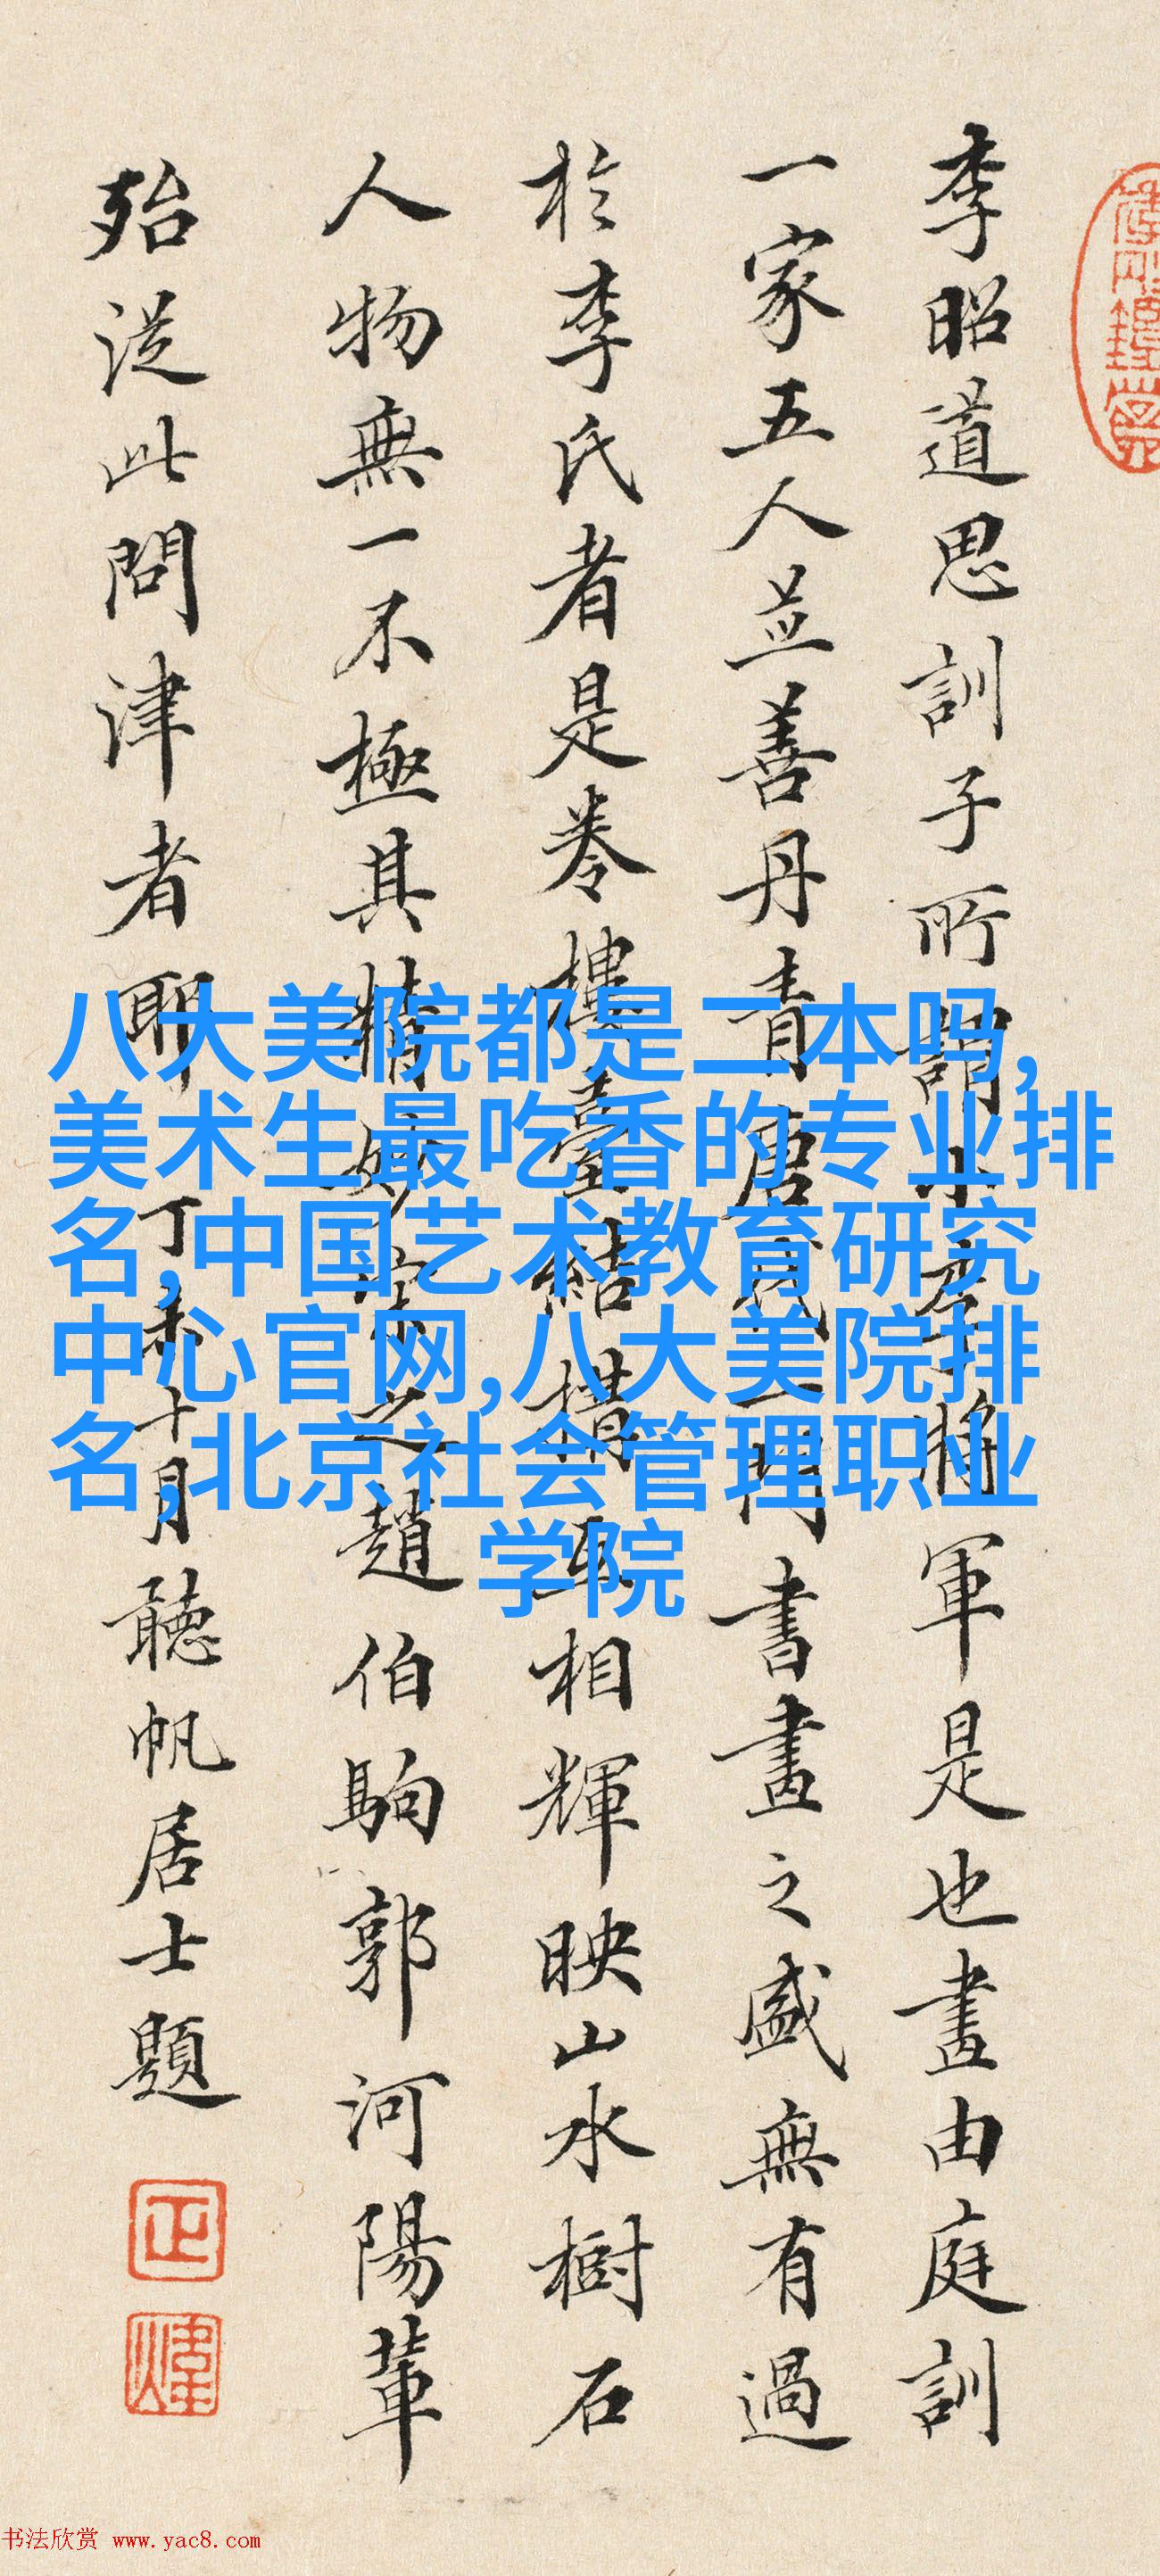 李昭道思訓子所謂小李將軍是也畫由庭訓
一家五人並善丹青唐代一門書畫之盛無有過
於李氏者是卷樓臺結構互相輝映山水樹石
人物無一不極其精妙宋之趙伯駒郭河陽輩
殆從此問津者耶 丁未十月聽帆居士題
八大美院都是二本吗,
美术生最吃香的专业排
名,中国艺术教育研究
中心官网,八大美院排
名,北京社会管理职业
学院
书法欣赏 www.yac8.com